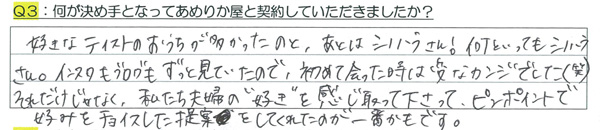 Q3：何が決め手となってあめりか屋と契約していただきましたか？
好きなテイストのおうちが多かったのと、あとはシバハラさん！何といってもシバハラ
さん。インスタもブログもずっと見ていたので、初めて会った時は変なカンジでした(笑)
それだけじゃなく、私たち夫婦の"好き"を感じ取って下さって、ピンポイントで
好みをチョイスした提案をしてくれたのが一番かもです。